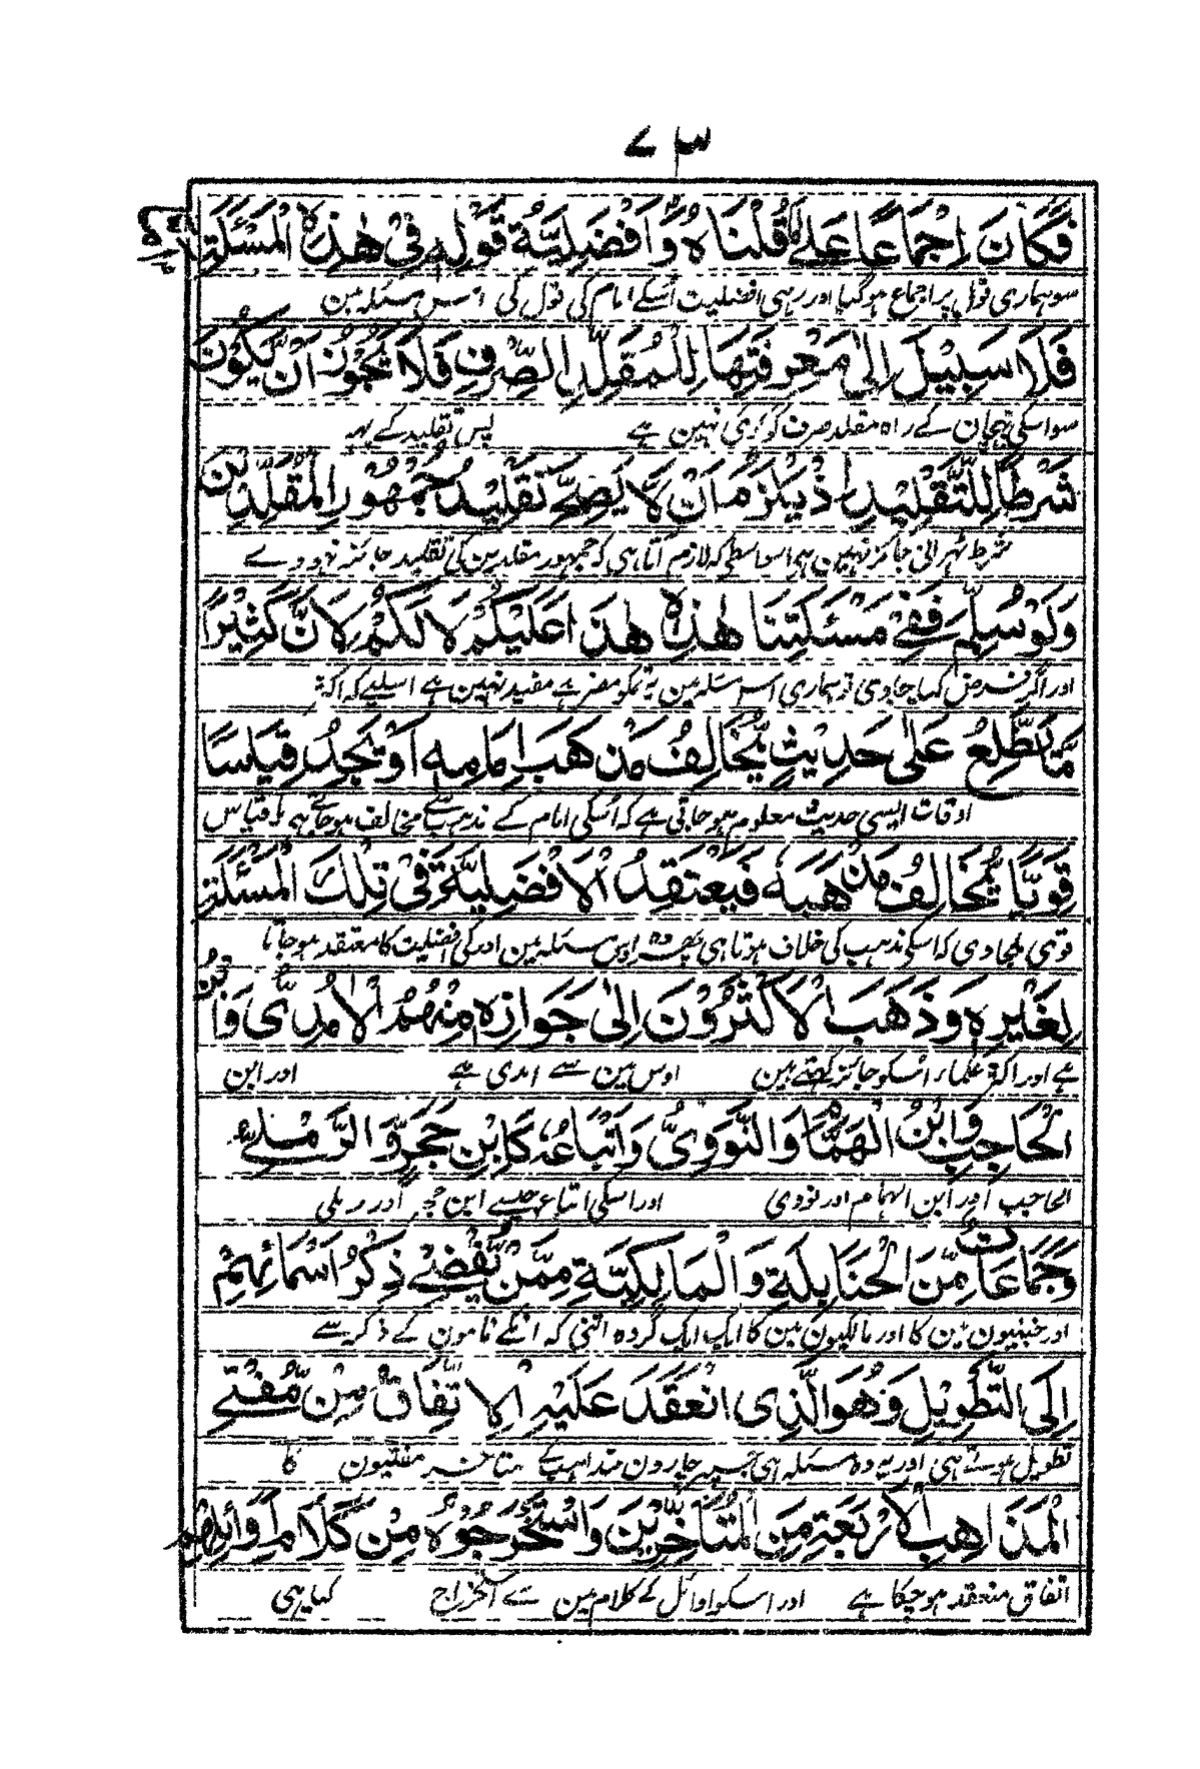 ۷۳
فَكَانَ اِجْمَاعًا عَلٰى مَا قُلْنَاهُ وَاَفْضَلِيَّةُ قَوْلِهٖ فِىْ هٰذِهِ الْمَسْئَلَةِ
سو ہماری قول پر اجماع ہو گیا اور رہی افضلیت اُسکے امام کی قول کی اس مسئلہ مین
فَلَا سَبِيْلَ اِلٰى مَعْرِفَتِهَا لِلْمُقَلِّدِ الصِّرْفِ فَلَا يَجُوْزُ اَنْ يَّكُوْنَ
سو اسکی پہچان کے راہ مقلد صرف کو کوئی نہین ہے پس تقلید کے لیے
شَرْطًا لِلتَّقْلِيْدِ اِذْ يَلْزَمُ اَنْ لَّا يَصِحَّ تَقْلِيْدُ جُمْهُوْرِ الْمُقَلِّدِيْنَ
شرط ٹہرانی جائز نہین ہی اسواسطی کہ لازم آتا ہی کہ جمہور مقلدین کی تقلید جائز نہووے
وَلَوْ سُلِّمَ فَفِىْ مَسْئَلَتِنَا هٰذِهٖ هٰذَا عَلَيْكُمْ لَا لَكُمْ لِاَنَّ كَثِيْرًا
اور اگر فرض کیا جاوی تو ہماری اس مسئلہ مین یہ تمکو مضر ہے مفید نہین ہے اسلیے کہ اکثر
مَّا يَطَّلِعُ عَلٰى حَدِيْثٍ يُّخَالِفُ مَذْهَبَ اِمَامِهٖ اَوْ يَجِدُ قِيَاسًا
اوقات ایسی حدیث معلوم ہو جاتی ہے کہ اُسکی امام کے مذہب سے مخالف ہوتی ہے یا قیاس
قَوِيًّا يُّخَالِفُ مَذْهَبَهٗ فَيَعْتَقِدُ الْاَفْضَلِيَّةَ فِىْ تِلْكَ الْمَسْئَلَةِ
قوی ملجاوی کہ اسکی مذہب کی خلاف ہوتا ہی پھر وہ اوس مسئلہ مین اور کی افضلیت کا معتقد ہو جاتا
لِغَيْرِهٖ وَذَهَبَ الْاَكْثَرُوْنَ اِلٰى جَوَازِهٖ مِنْهُمُ الْاٰمِدِىُّ وَابْنُ
ہے اور اکثر علماء اسکو جائز کہتے ہین اوس مین سے امدی ہے اور ابن
الْحَاجِبِ وَابْنُ الْهُمَامِ وَالنَّوَوِىُّ وَاَتْبَاعُهٗ كَابْنِ حَجَرٍ وَّالرَّمْلِىِّ
الحاجب اور ابن الہمام اور نووی اور اسکی اتباع جیسے ابن حجر اور رملی
وَجَمَاعَاتٌ مِّنَ الْحَنَابِلَةِ وَالْمَالِكِيَّةِ مِمَّنْ يُّفْضِىْ ذِكْرُ اَسْمَائِهِمْ
اور حنبلیون مین کا اور مالکیون مین کا ایک ایک گروہ اتنی کہ انکے نامون کے ذکر سے
اِلَى التَّطْوِيْلِ وَهُوَ الَّذِى انْعَقَدَ عَلَيْهِ الْاِتِّفَاقُ مِنْ مُّفْتِىْ
تطویل ہوتے ہی اور یہ وہ مسئلہ ہی جسپر چارون مذاہب کے متاخر مفتیون کا
الْمَذَاهِبِ الْاَرْبَعَةِ مِنَ الْمُتَاَخِّرِيْنَ وَاسْتَخْرَجُوْهُ مِنْ كَلَامِ اَوَائِلِهِمْ
اتفاق منعقد ہو چکا ہے اور اسکو اوائل کے کلام مین سے استخراج کیا ہی